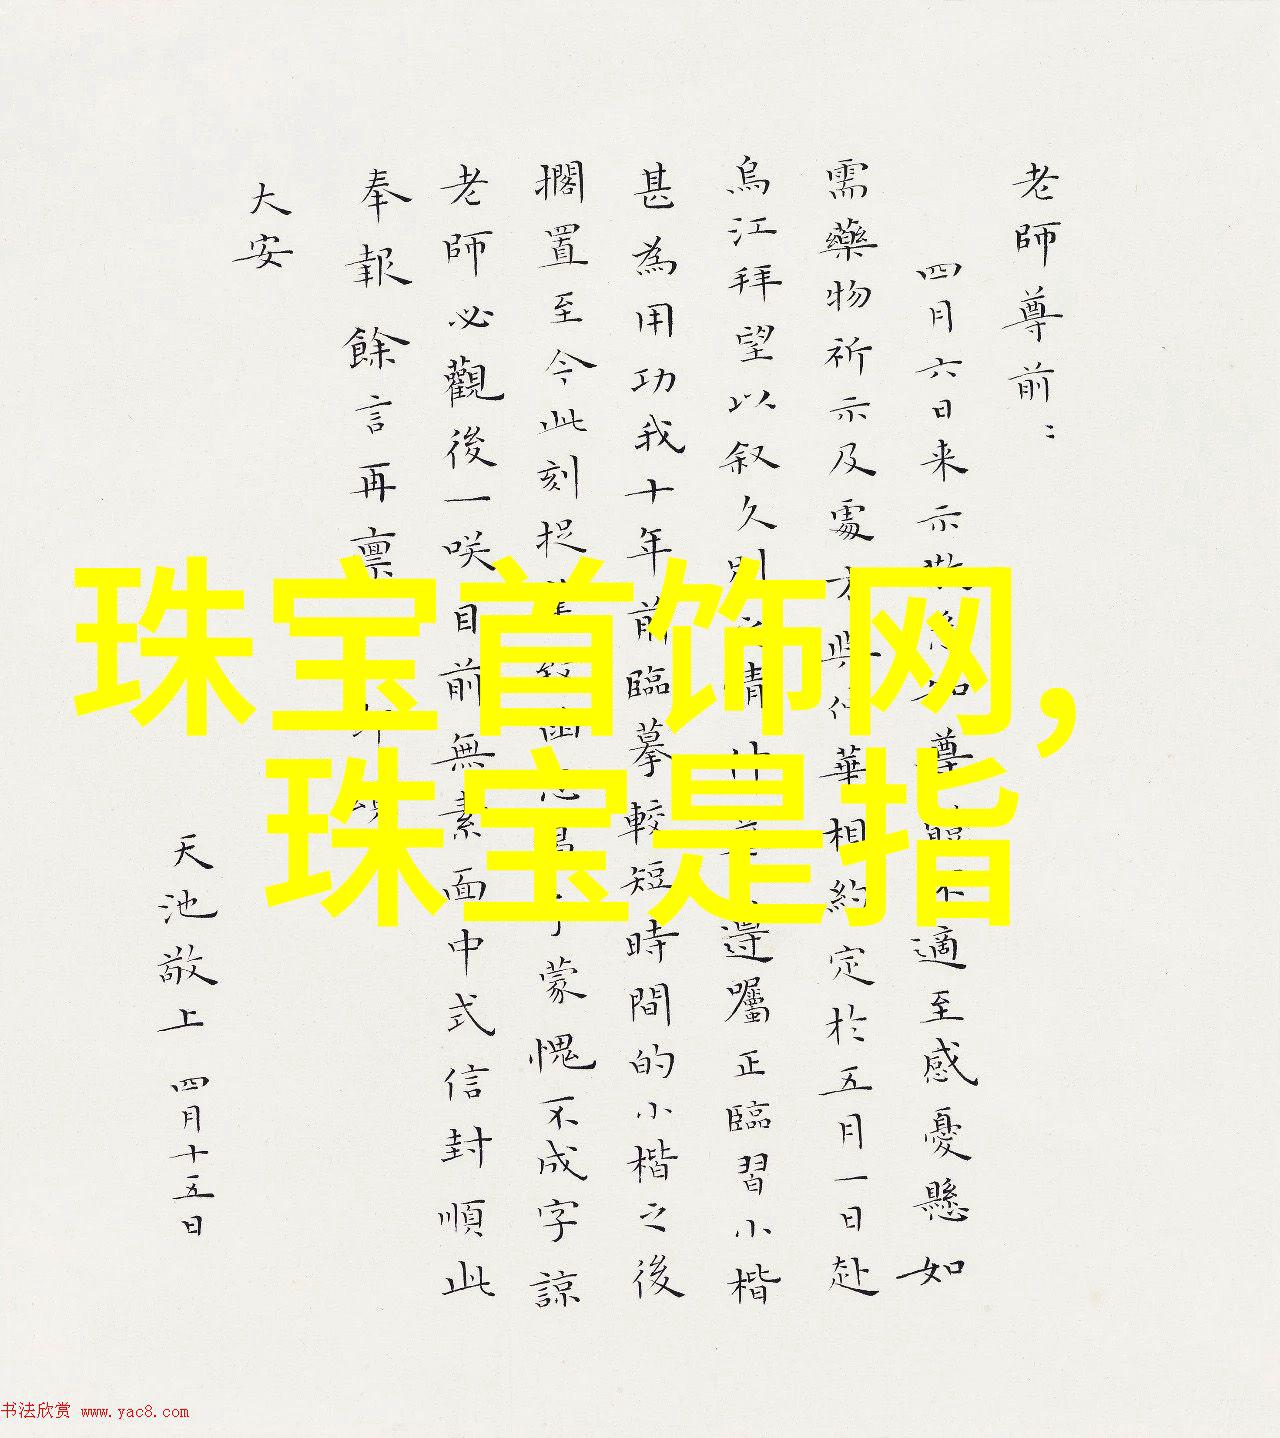 老師尊前：
四月六日来示 適至感憂懸如
需藥物祈示及處 華相約定於五月一日赴
烏江拜望以叙久別 情 遵囑正臨習小楷
甚為用功我十年前臨摹較短時間的小楷之後
擱置至今此刻捉 蒙愧不成字諒
老師必觀後一咲目前無素面中式信封順此
奉報餘言再稟
大安
天池敬上 四月十五日
珠宝首饰网,
珠宝是指
书法欣赏 www.yac8.com